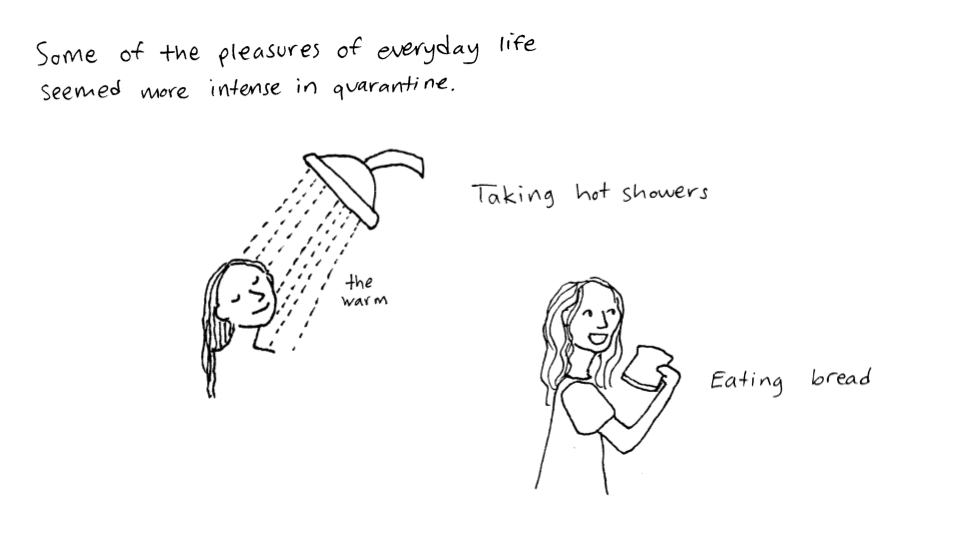 Some of the pleasures of everyday life
seemed more intense in quarantine.
Taking hot showers
the
warm
Eating bread